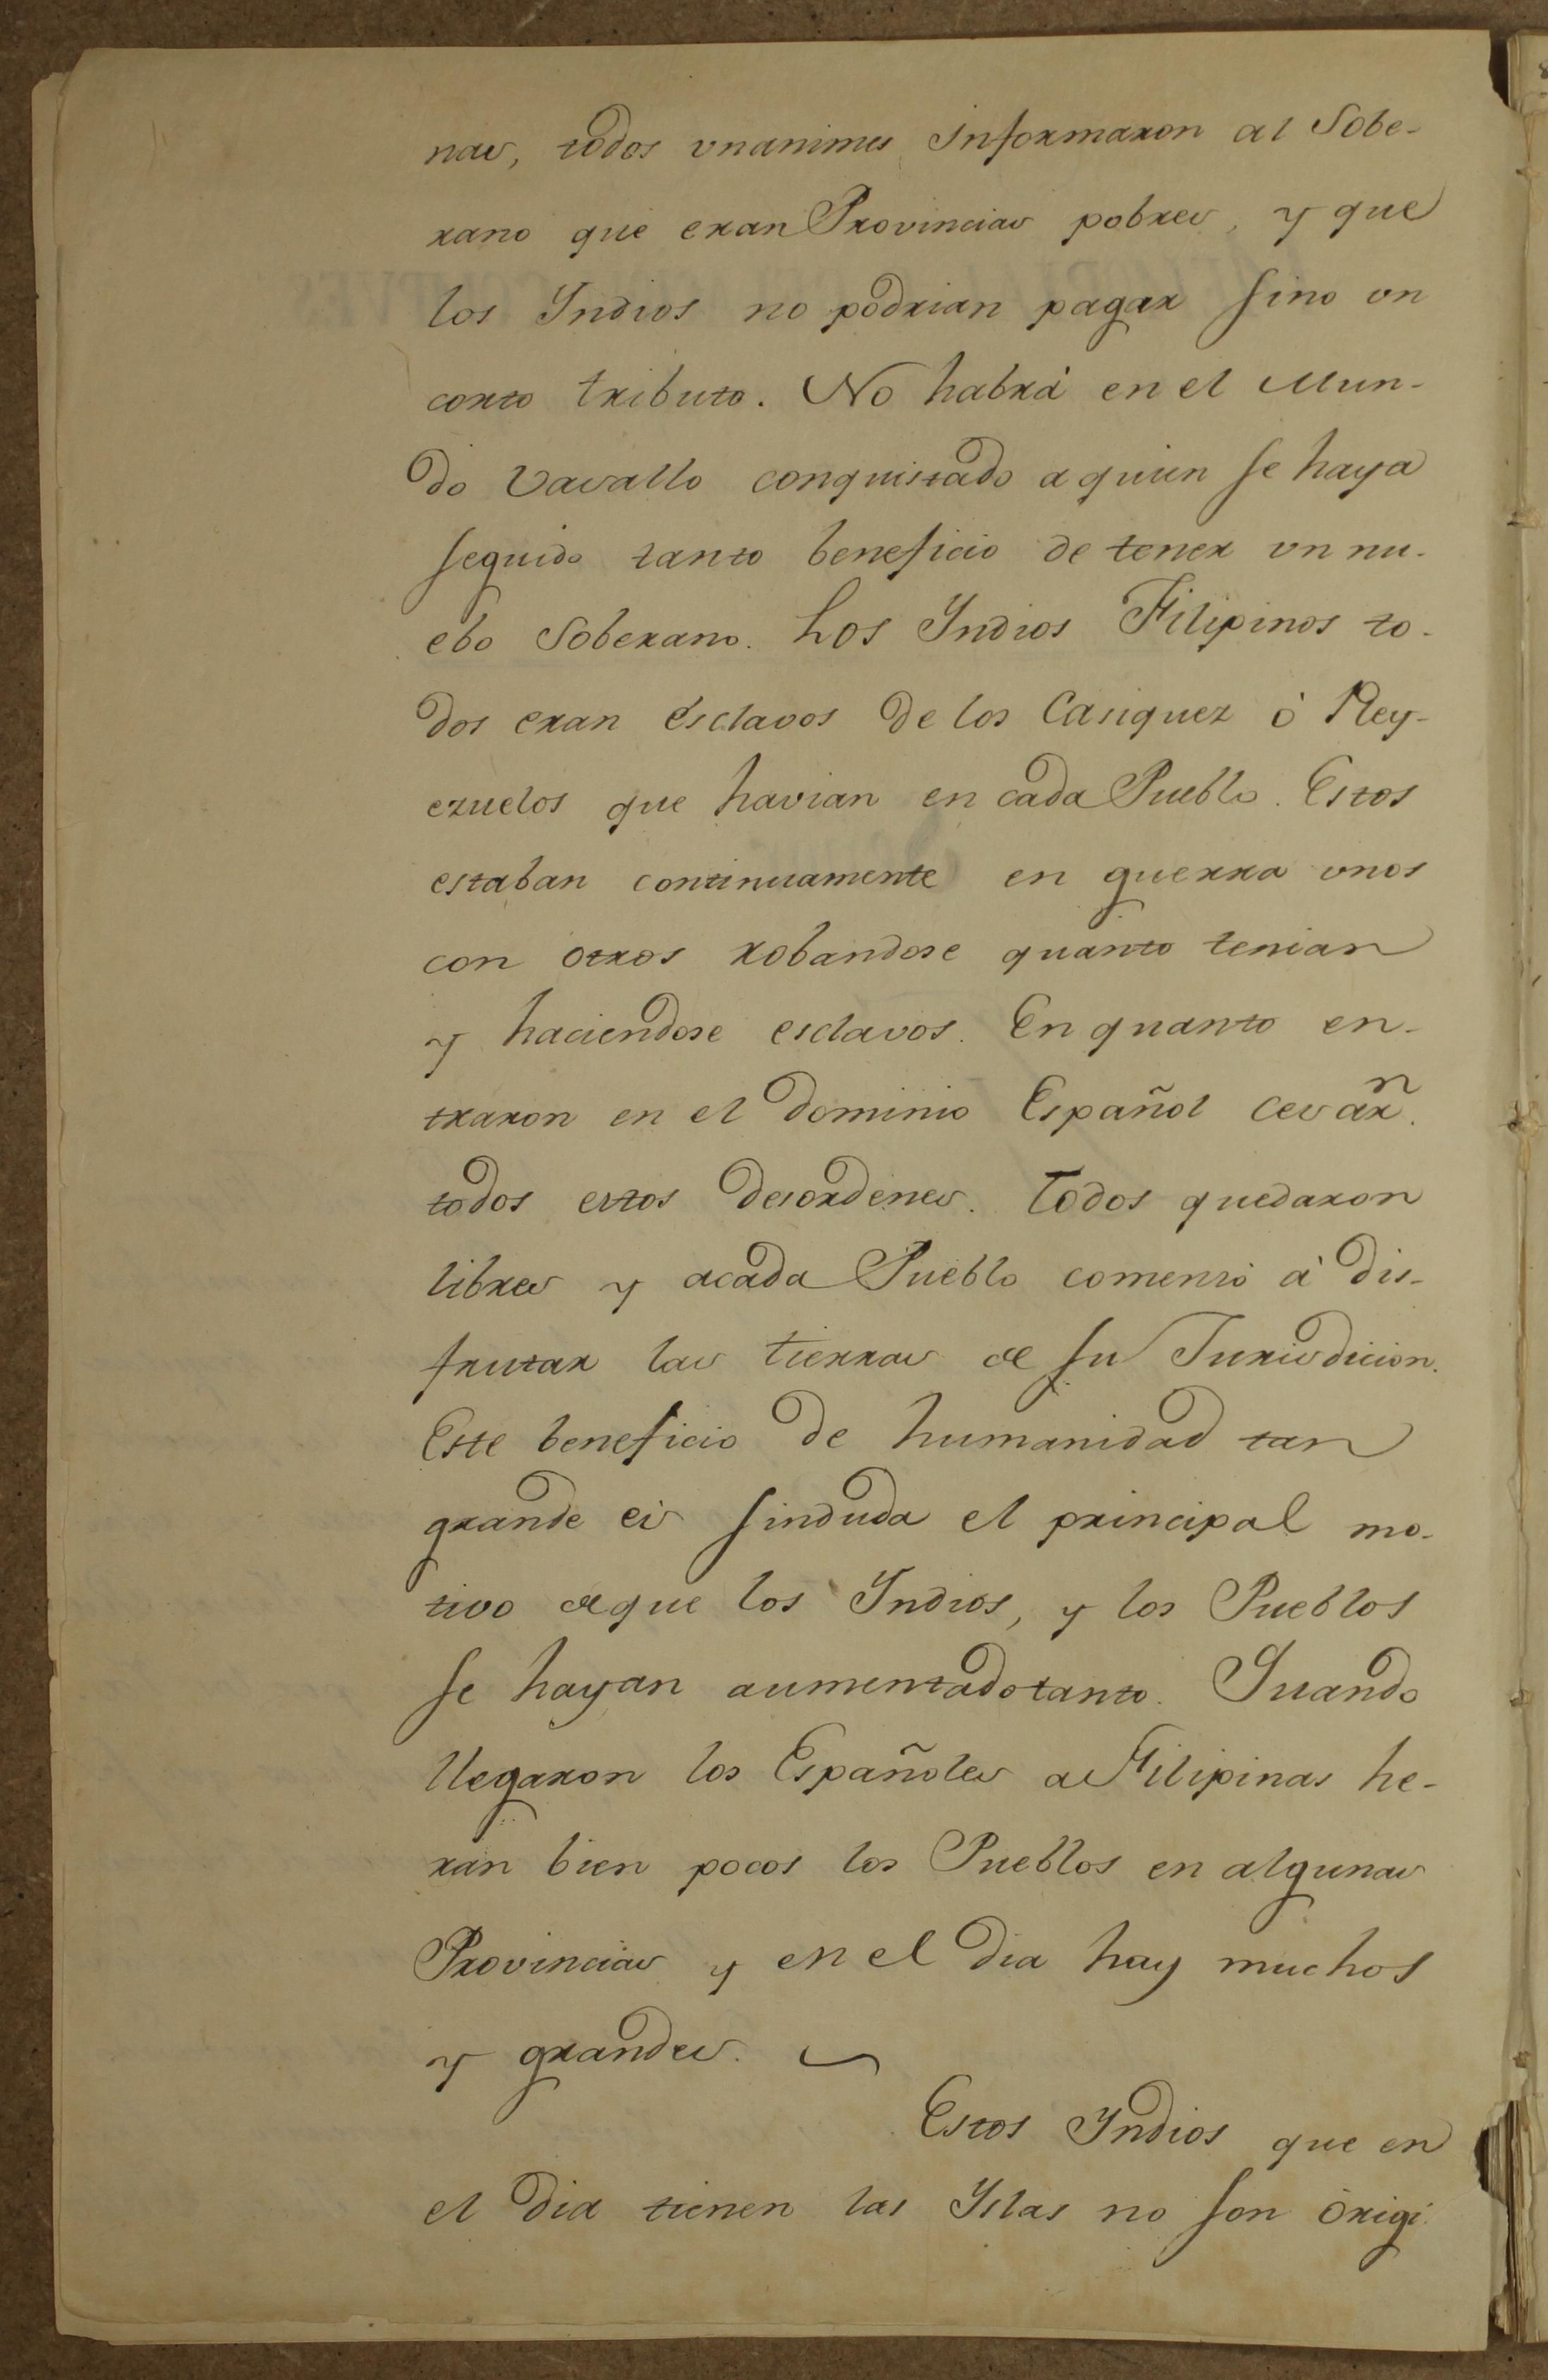 nas, todos vnanimes Informaron al Sobe-
rano que eran Provincias pobres, y que
los Yndios no podrian pagar sino vn
corto tributo. No habrá en el Mun-
do Vasallo conquistado a quien se haya
seguido tanto beneficio de tener vn nu-
ebo Soberano. Los Yndios Filipinos to-
dos eran esclavos de los Casiquez ó Rey-
ezuelos que havian en cada Pueblo. Estos
estaban continuamente en guerra vnos
con otros robandose quanto tenian
y haciendose esclavos. En quanto en-
traron en el dominio Español cesarn.
todos estos desordenes. Todos quedaron
libres y acada Pueblo comenzó á dis-
frutar las tierras de su Jurisdicion.
Este beneficio de humanidad tan
grande es sinduda el principal mo-
tivo deque los Yndios, y los Pueblos
se hayan aumentado tanto. Quando
llegaron los Españoles a Filipinas he-
ran bien pocos los Pueblos en algunas
Provincias y en el dia hay muchos
y grandes.
Estos Yndios que en
el dia tienen las Yslas no son origi-